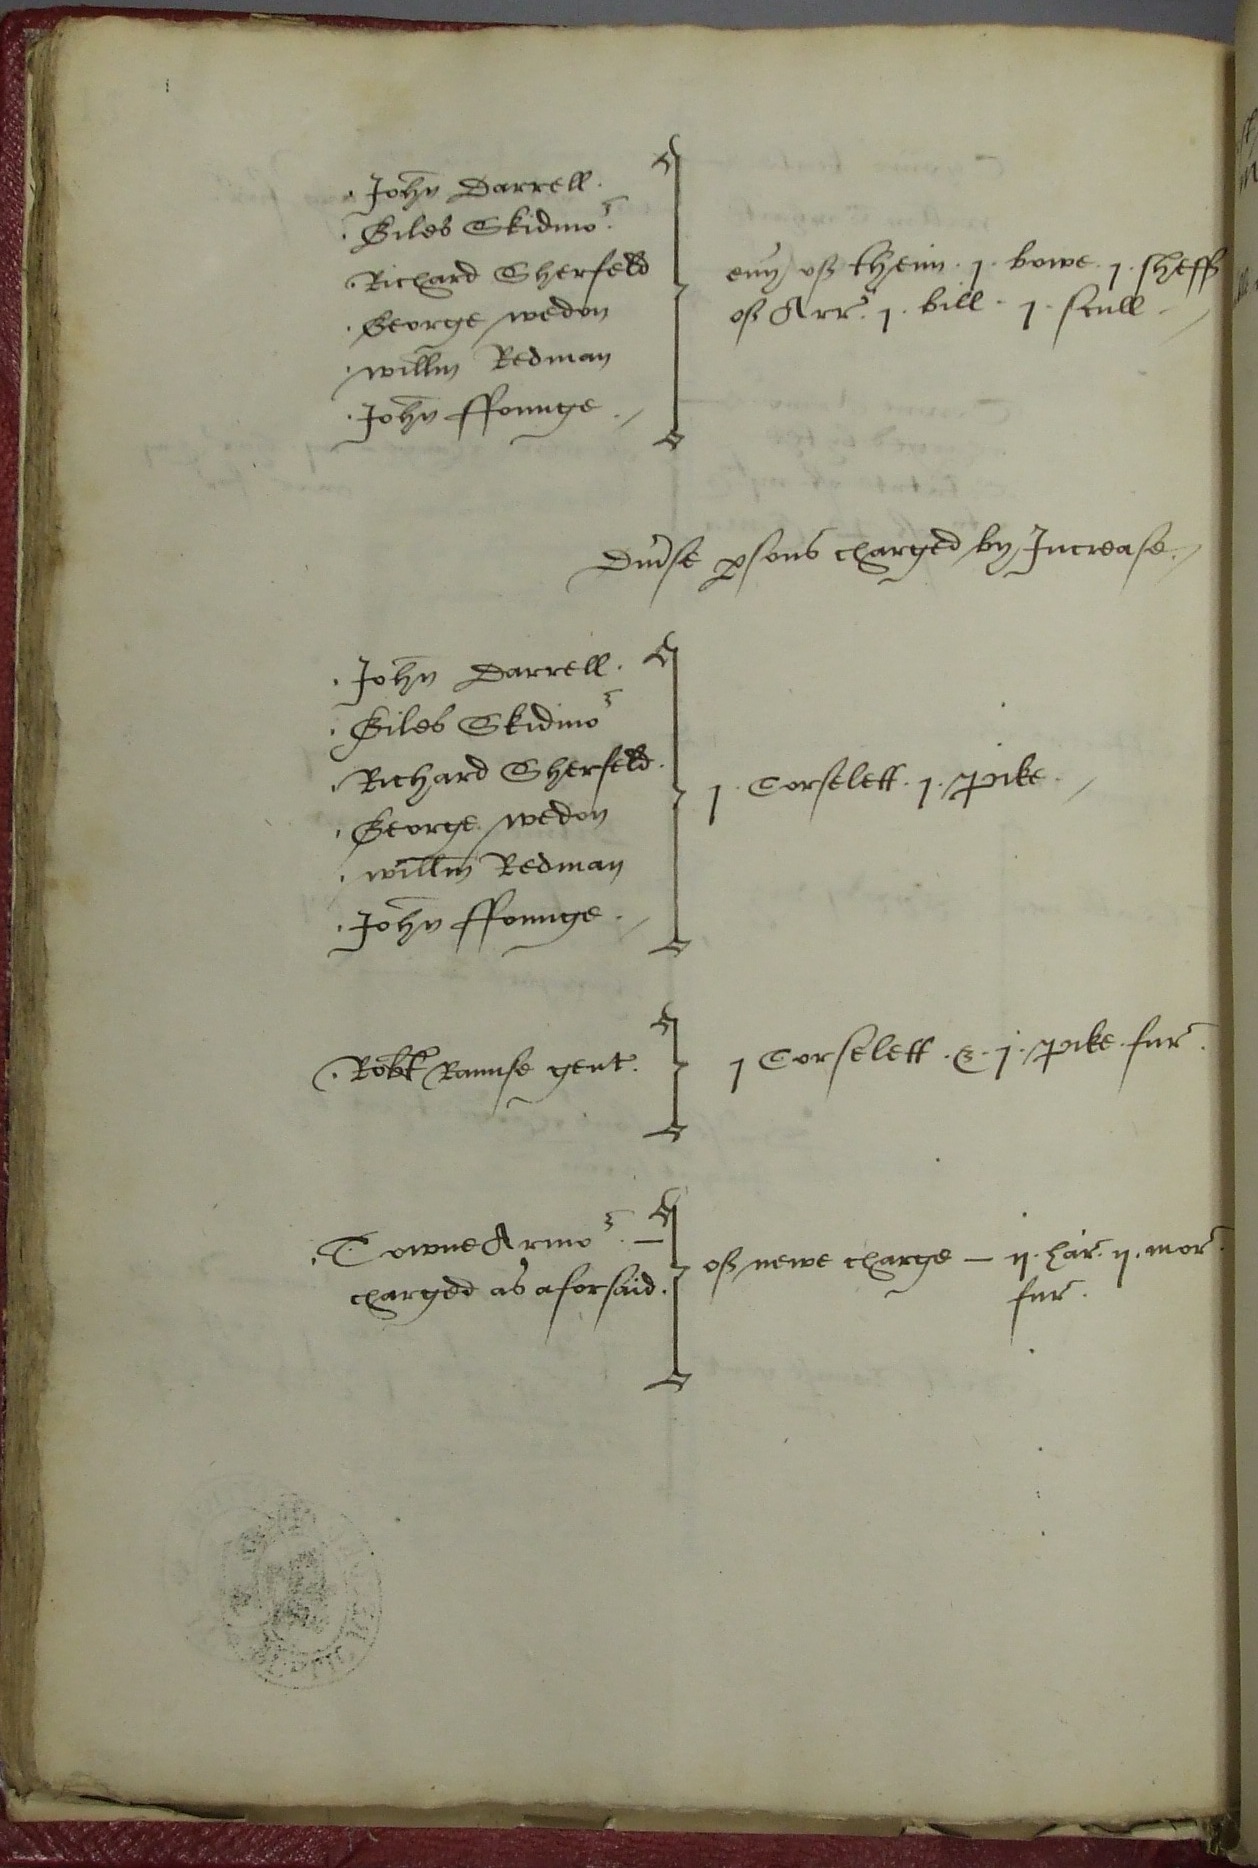 John Darrell.
Giles Skidmor.
Richard Sherfeld
George wedon
willm Redman
John ffounge
euy of theim . j . bowe . j . sheff
of Arr. j . bill . j . scull
Diuse psons charged by Increase
John Darrell .
Giles Skidmor
Richard Sherfeld .
George wedon
willm Redman
John ffounge .
j . Corselett . j . pike .
Robt gent .
j Corselett . & . j . pike fur .
Towne Armor . —
charged as aforsaid .
of newe charge — ij . har . ij . mor .
fur .